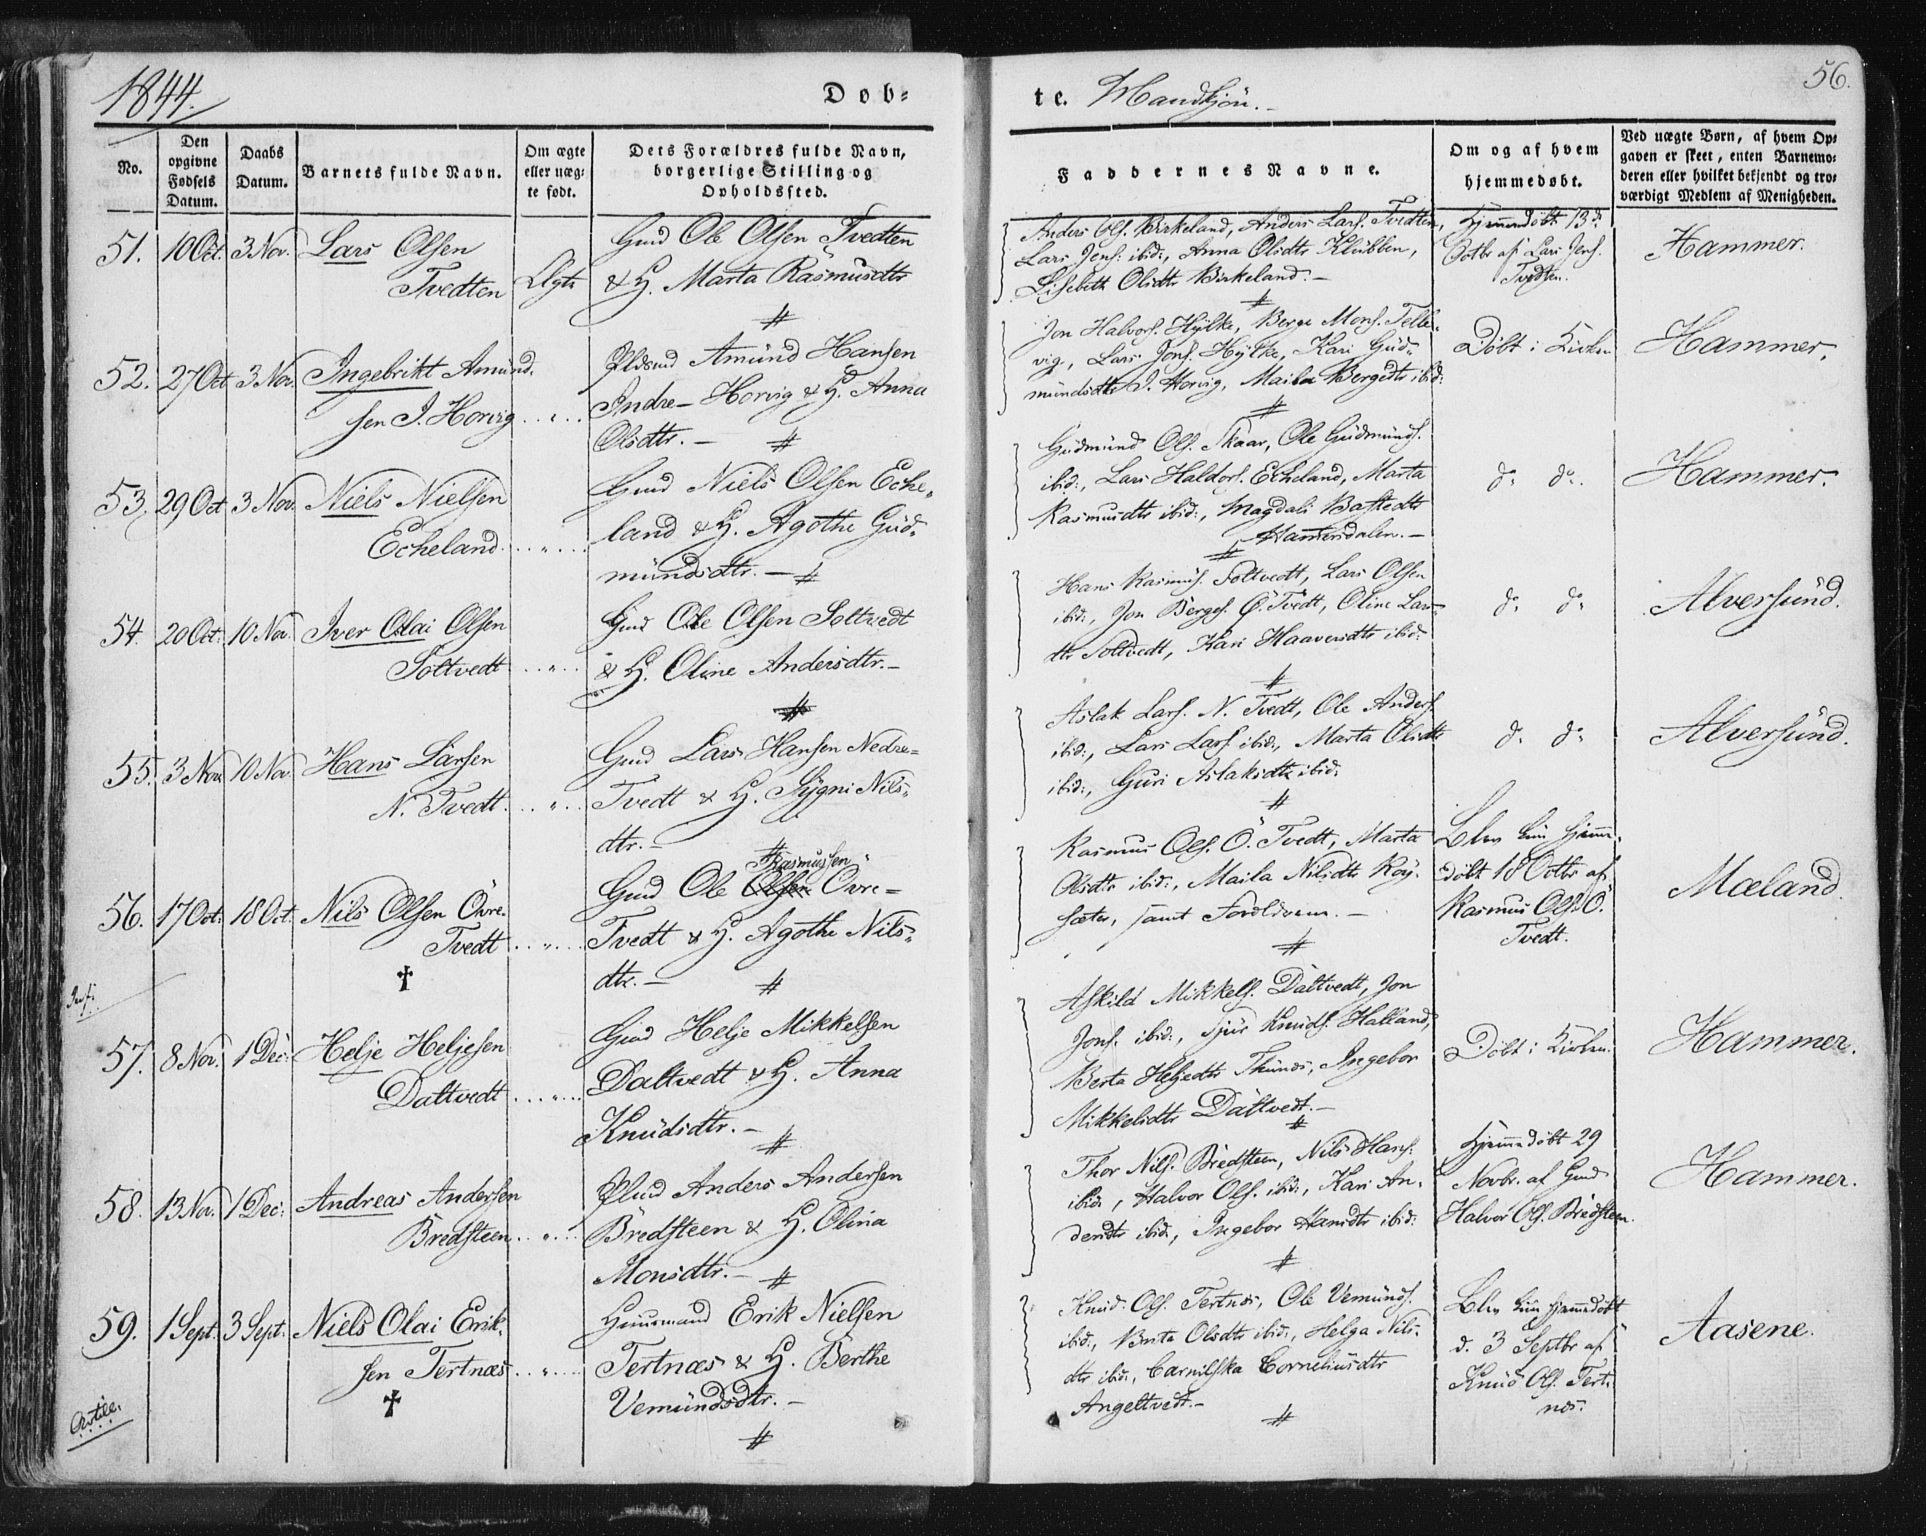 1844.
Dob-
te. Mandkjön.-
56.
No.
Den opgivne Fødsels Datum.
Daabs Datum.
Barnets fulde Navn.
Om ægte eller uæg-
te født.
Dets Forældres fulde Navn,
borgerlige Stilling og
Opholdssted.
Faddernes Navne.
Om og af hvem
hjemmedøbt.
Ved uægte Børn, af hvem Op-
gaven er skeet, enten Barnemo-
deren eller hvilket bekjendt og tro-
værdigt Medlem af Menigheden.
51. 10 Oct. 3 Nov. Lars Olsen
Tvedten
Ægte
Gmd Ole Olsen Tvedten
& H. Marta Rasmusdtr
Anders Ols. Birkeland, Anders Lars. Tvedten,
Lars Jens. ibid:, Anna Olsdtr Klubben,
Lisebeth Olsdtr Birkeland.-
Hjemmedöbt 13d.
Octbr af Lars Jens.
Tvedten.
Hammer.
52. 27 Oct 3 Nov. Ingebrikt Amund-
sen I. Horvig
Amund Hansen
Indre- Horvig & H. Anna
Olsdtr.-
Jon Halvors. Hylke, Berge Mons. Telle-
vig, Lars Jons. Hylke, Kari Gud-
mundsdtr I. Horvig, Maila Bergedtr ibid:
Döbt i Kirken
Hammer.
53. 29 Oct 3 Nov. Niels Nielsen
Echeland
Gmd Niels Olsen Eche-
land & H. Agothe Gud-
mundsdtr.-
Gudmund Ols. Skaar, Ole Gudmunds.
ibid:, Lars Haldors. Echeland, Marta
Rasmusdtr ibid:, Magdali Bastedtr
Hamersdalen.-
do do.
Hammer.
54. 20 Oct. 10 Nov. Iver Olai Olsen
Soltvedt
Gmd Ole Olsen Soltvedt
& H. Oline Andersdtr.-
Hans Rasmus. Soltvedt, Lars Olsen
ibid:, Jon Berges. Ö. Tvedt, Oline Lars-
dtr Soltvedt, Kari Haaversdtr ibid:
do do
Alversund.
55. 3 Nov. 10 Nov. Hans Larsen
N. Tvedt
Gmd Lars Hansen Nedre-
Tvedt & H. Sygni Nils-
dtr.-
Aslak Lars. N. Tvedt, Ole Anders.
ibid:, Lars Lars. ibid:, Marta Olsdtr
ibid:, Guri Aslaksdtr ibid:
do do
Alversund.
56. 17 Oct. 18 Oct. Nils Olsen Övre-
Tvedt
Rasmussen
Gmd Ole Olsen Övre-
Tvedt & H. Agothe Nils-
dtr.-
Rasmus Ols. Ö. Tvedt, Marta
Olsdtr ibid:, Maila Nilsdtr Röy-
sæter, samt Forældrene.-
Blev kun hjemme-
döbt 18 Octbr af
Rasmus Ols. Ö.
Tvedt.
Mæland.
57. 8 Nov. 1 Dec: Helje Heljesen
Daltvedt
Gmd Helje Mikkelsen
Daltvedt & H. Anna
Knudsdtr.-
Askild Mikkels. Daltvedt, Jon
Jons. ibid:, Sjur Knuds. Halland,
Berta Heljedtr Thunes, Ingebor
Mikkelsdtr Daltvedt.-
Döbt i Kirken.
Hammer.
58. 13 Nov. 1 Dec: Andreas Andersen
Bredsteen
Anders Andersen
Bredsteen & H. Olina
Monsdtr.-
Thor Nils. Bredsteen, Nils Hans.
ibid:, Halvor Ols. ibid:, Kari An-
dersdtr ibid:, Ingebor Hansdtr ibid:
Hjemmedöbt 29
Novbr. af Gmd
Halvor Ols. Bredsteen.
Hammer.
59. 1 Sept. 3 Sept. Niels Olai Erik-
sen Tertnæs
Huusmand Erik Nielsen
Tertnæs & H. Berthe
Vemundsdtr.-
Knud Ols. Tertnæs, Ole Vemunds.
ibid:, Brita Olsdtr ibid:, Helga Nils-
dtr ibid:, Corneliusdtr
Angeltvedt.-
Blev kun hjemmedöbt
d. 3 Septbr af
Knud Ols. Tert-
næs.
Aasene.